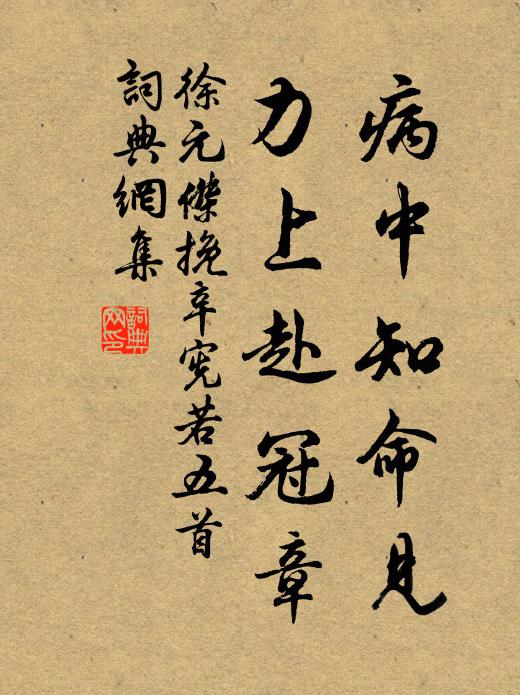 病中知命見
力上赴冠章
徐元傑挽辛宪若五首
詞典網集
詞典网印